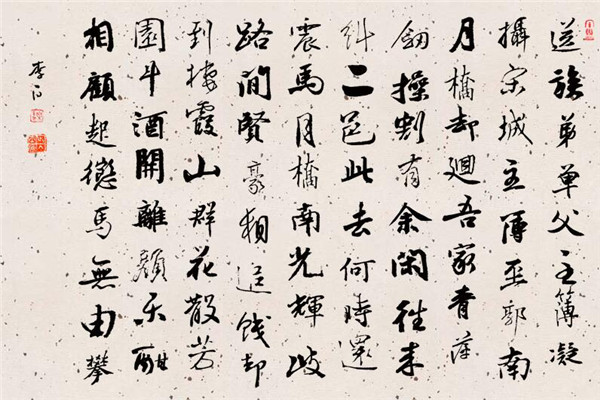 送族弟單父主簿凝
攝宋城主簿至郭南
月橋却廻吾家青萍
劒操割有余閑往来
糾二邑此去何時還
馬月橋南光輝岐
路間賢豪相追餞却
到棲霞山群花散芳
園斗酒開離顏樂酣
相顧起徵馬無由攀
李白